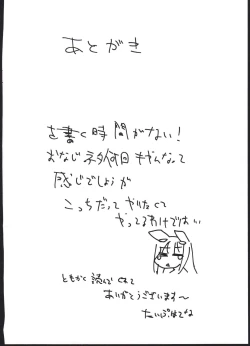 あとがき
を書く時間がない!
おなじネタ何回もやんなって
感じでしょうが
こっちだってやりたくて
やってるわけではない
ともかく読んでくれて
ありがとうございます〜